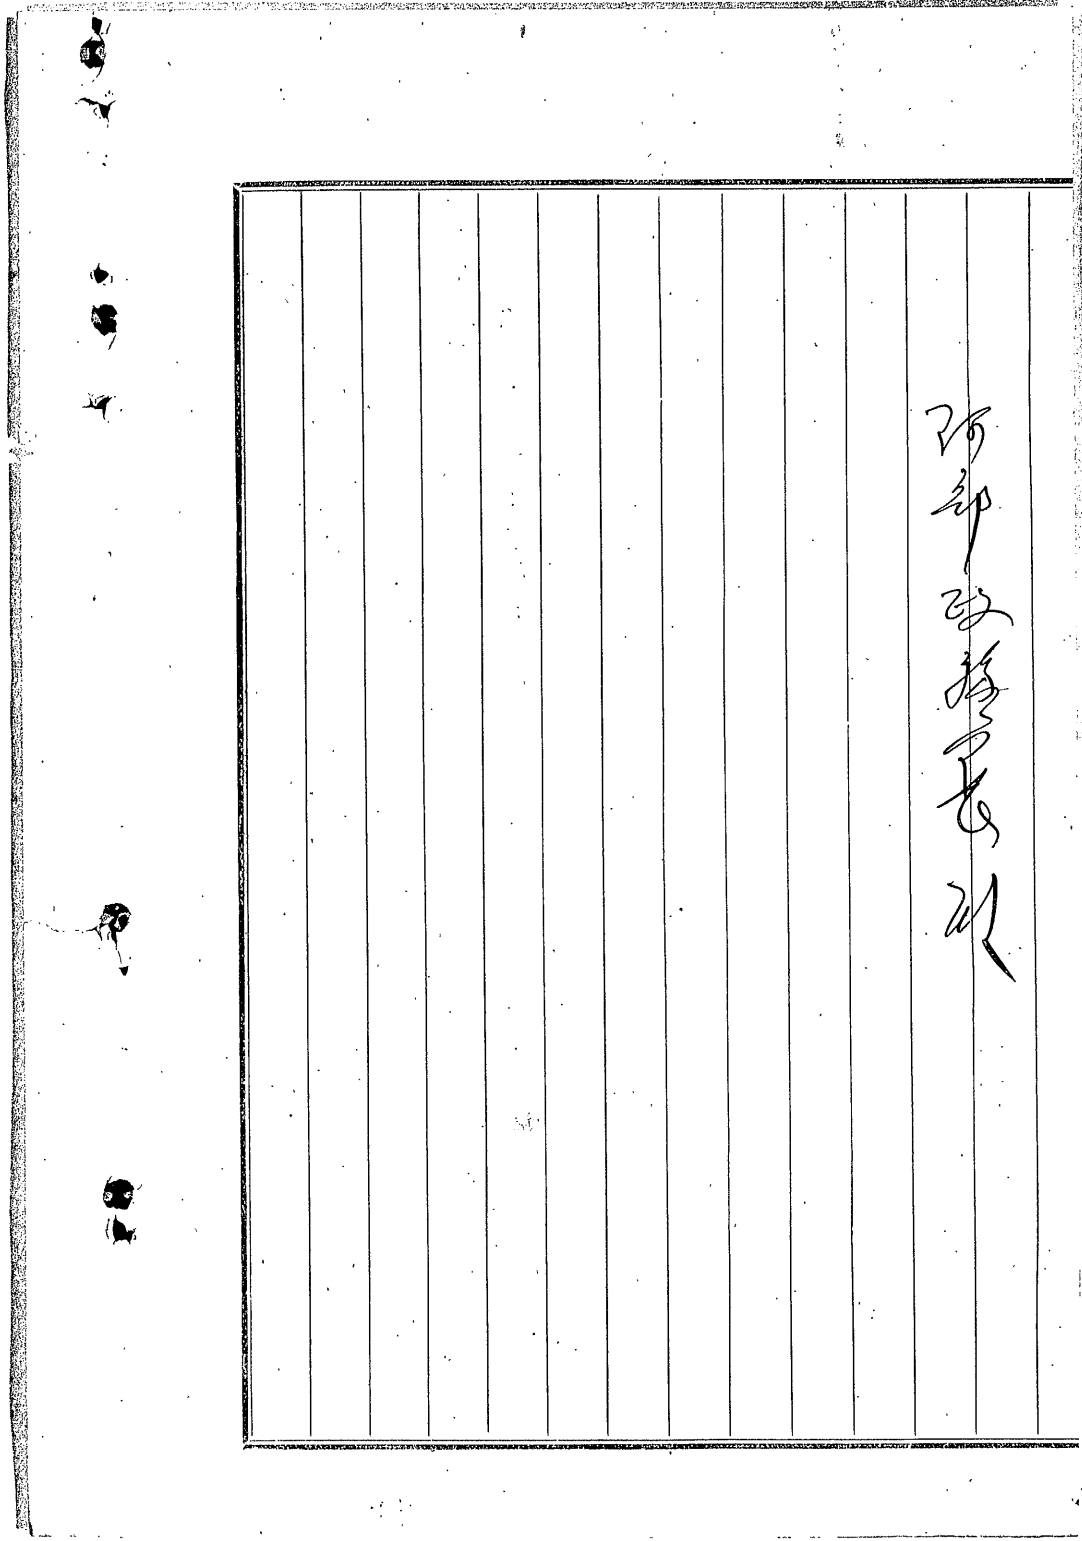 阿部政務局長殿